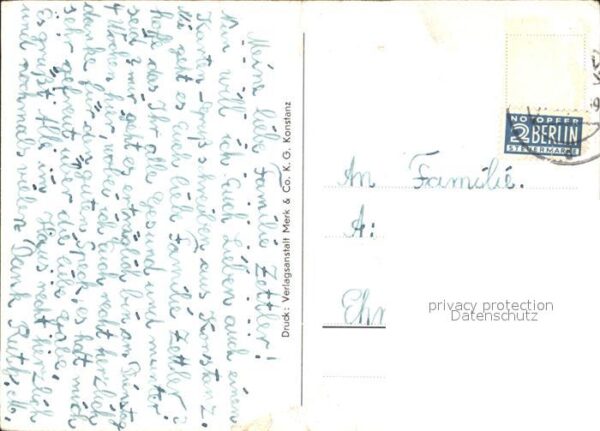 Meine liebe Familie Zettler!
Nun will ich Euch Lieben auch einen
Karten Gruß schreiben aus Konstanz.
Wie geht es Euch lieb Familie Zettler?
hoffe das Ihr alle Gesund und munter
seid, mir geht es erträglich bin am Dienstag
4 Wochen hier, wollte ich auch noch herzlich
danke für den guten Speck, es hat mich
sehr gefreut über die liebe gabe.
Es grüßt Alle im Haus recht herzlich
und nochmals vielen Dank
Druck: Verlagsanstalt Merk & Co. K. G. Konstanz
NOTOPFER
2 BERLIN
STEUERMARKE
An Familie.
A:
Ehr
privacy protection
Datenschutz